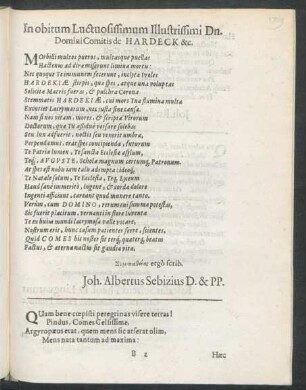 In obitum Luctuosissimum Illustrissimi Dn.
Domini Comitis de HARDECK &c.
MOrbosi multos pueros, multasque puellas
Hactenus ad dira misserunt limina mortis:
Nec quoque Te immunem fecerunt, inclyta proles
HARDEKIÆ stirpis, quæ spes, atque una voluptas
Solicitæ Matris fueras, & pulchra Corona
Stemmatis HARDEKII, cui mors Tua flumina multa
Excutiet Lacrymarum, nec justa sine causa.
Nam si nos vitam, mores, & scripta Virorum
Doctorum, quæ Tu assidue versare solebas
Dum lux adfuerit, noctis seu venerit umbra,
Perpendamus, eras spes concipienda, futurum
Te Patriæ lumen, Te sanctæ Ecclesiæ asilum,
Teq́, AUGUSTE, Scholæ magnum certumq́, Patronum.
At spes est nobis tam talis ademta: ideoq́,
Te Natale solum, Te Ecclesia, Teq́, Lyceum
Haud sane immeritò, lugent, & corda dolore
Ingenti afficiunt, careant quod munere tanto.
Verùm, cum DOMINO, rerum cui summa potestas,
Sic fuerit placitum, vernanti in flore juventa
Te ex hujus mundi lacrymosa valle vocare,
Nostrum erit, hunc casum patienter ferre, scientes,
Quòd COMES hic noster sit terq́, quaterq́, beatus
Factus, & æternùm hic sit gaudia vita.
Συμπαθείας ergò scrib.
Joh. Albertus Sebizius D. & PP.
QUam bene cœpisti peregrinas visere terras!
Pindus. Comes Celsissime.
Argyropæus erat: quem mens sic atserat olim,
Mens nata tantum ad maxima:
B 2
Hæc